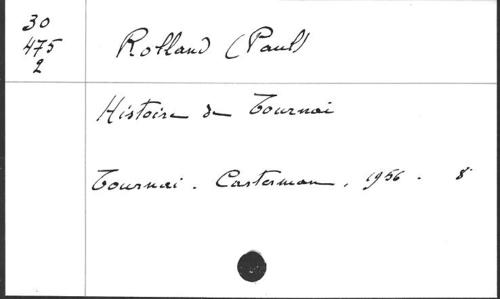 30
475
2
Rolland (Paul)
Histoire de Tournai
Tournai. Casterman, 1956. 8°